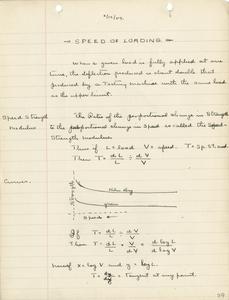 SPEED OF LOADING.
When a given load is fully applied at one
time, the deflection produced is about double that
produced by a Testing machine with the same load
as the upper limit.
Speed-Strength The Ratio of the proportional change in Strength
Modulus to the proportional change in speed is called the Speed-
Strength Modulus.
Thus if L = load V = speed. T = Sp. St. mod.
Then T = dL/L ÷ dV/V
Curves.
Speeds
If T = dL/L ÷ dV/V
Then T = dL/L × V/dV = d log L/d log V
whence if x = log V and y = log L
T = dy/dx = Tangent at any point.